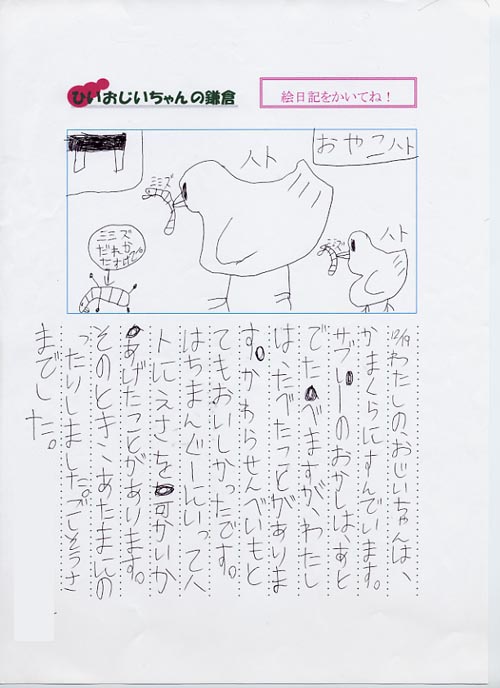 ひいおじいちゃんの鎌倉
絵日記をかいてね!
おやこハト
ハト
ミミズ
ハト
ミミズ
ミミズ
だれか
たすけて
わたしのおじいちゃんは、
かまくらにすんでいます。
のおかしは、あと
でたべますが、わたし
は、たべたことがありま
す。かわらせんべいもと
てもおいしかったです。
はちまんぐーにいってハ
トにえさを
あげたことがあります。
そのとき、あたまにの
ったりしました。ごちそうさ
までした。